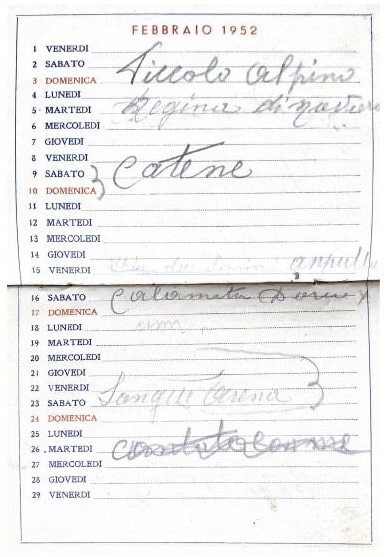 FEBBRAIO 1952
1 VENERDI
2 SABATO Piccolo Alpino
3 DOMENICA
4 LUNEDI
5 MARTEDI Regina di
6 MERCOLEDI
7 GIOVEDI
8 VENERDI
9 SABATO Catene
10 DOMENICA
11 LUNEDI
12 MARTEDI
13 MERCOLEDI
14 GIOVEDI
15 VENERDI
16 SABATO Calamita
17 DOMENICA
18 LUNEDI
19 MARTEDI
20 MERCOLEDI
21 GIOVEDI
22 VENERDI
23 SABATO Sangue e arena
24 DOMENICA
25 LUNEDI
26 MARTEDI
27 MERCOLEDI
28 GIOVEDI
29 VENERDI